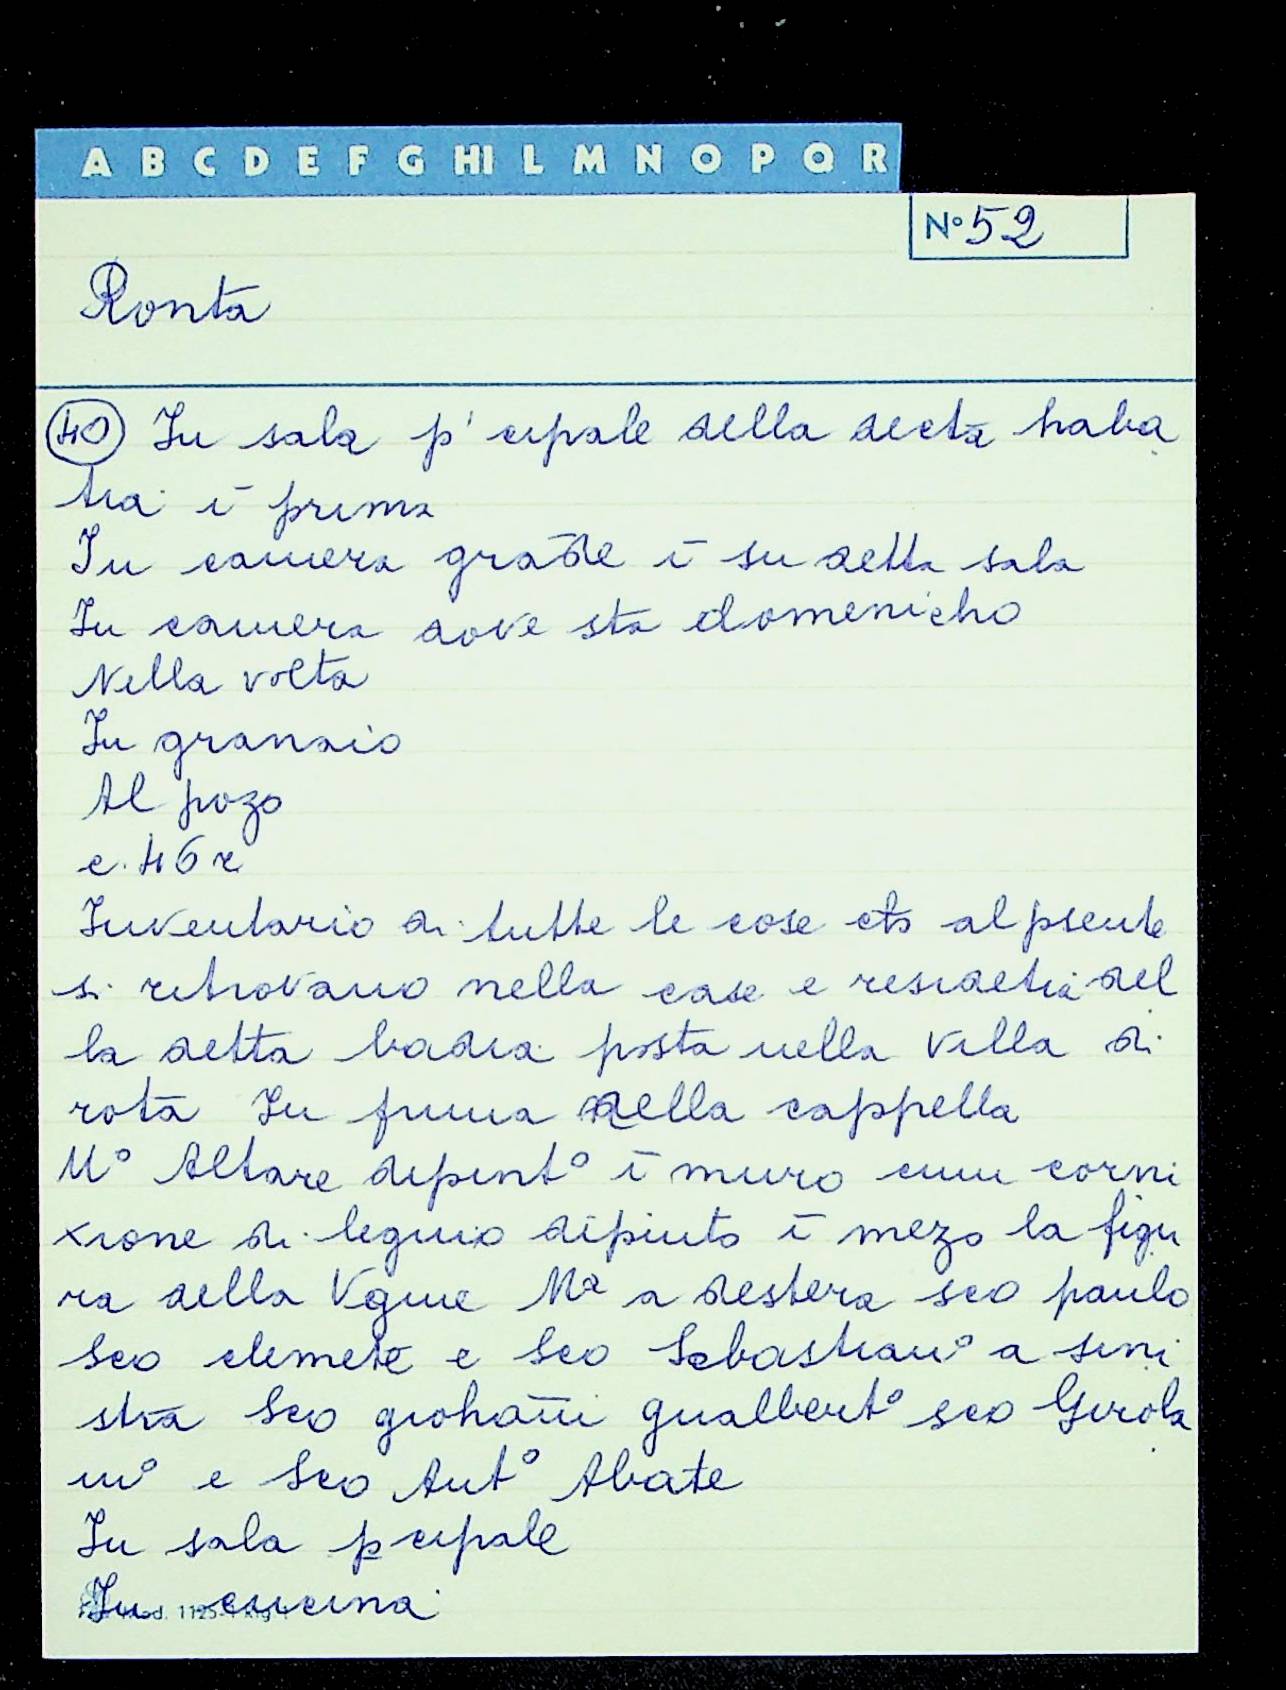 A B C D E F G HI L M N O P Q R
N° 52
Ronta
40 In sala p'cipale della decta haba
tia ī prima
In camera grāde ī su detta sala
In camera dove sta domenicho
Nella volta
In granaio
Al pozo
c. 46 r
Inventario di tutte le cose che al psente
si ritrovano nella case e residētia del
la detta badia posta nella villa di
rotā In prima nella cappella
Uº Altare dipintº ī muro cum corni
xione di legnio dipinto ī mezo la figu
ra della Vgine Mª a destera sco paulo
Sco clemetē e Sco Sebastianº a sini
stra Sco giohāni gualbertº sco Girola
mº e Sco Antº Abate
In sala pcipale
In cucina